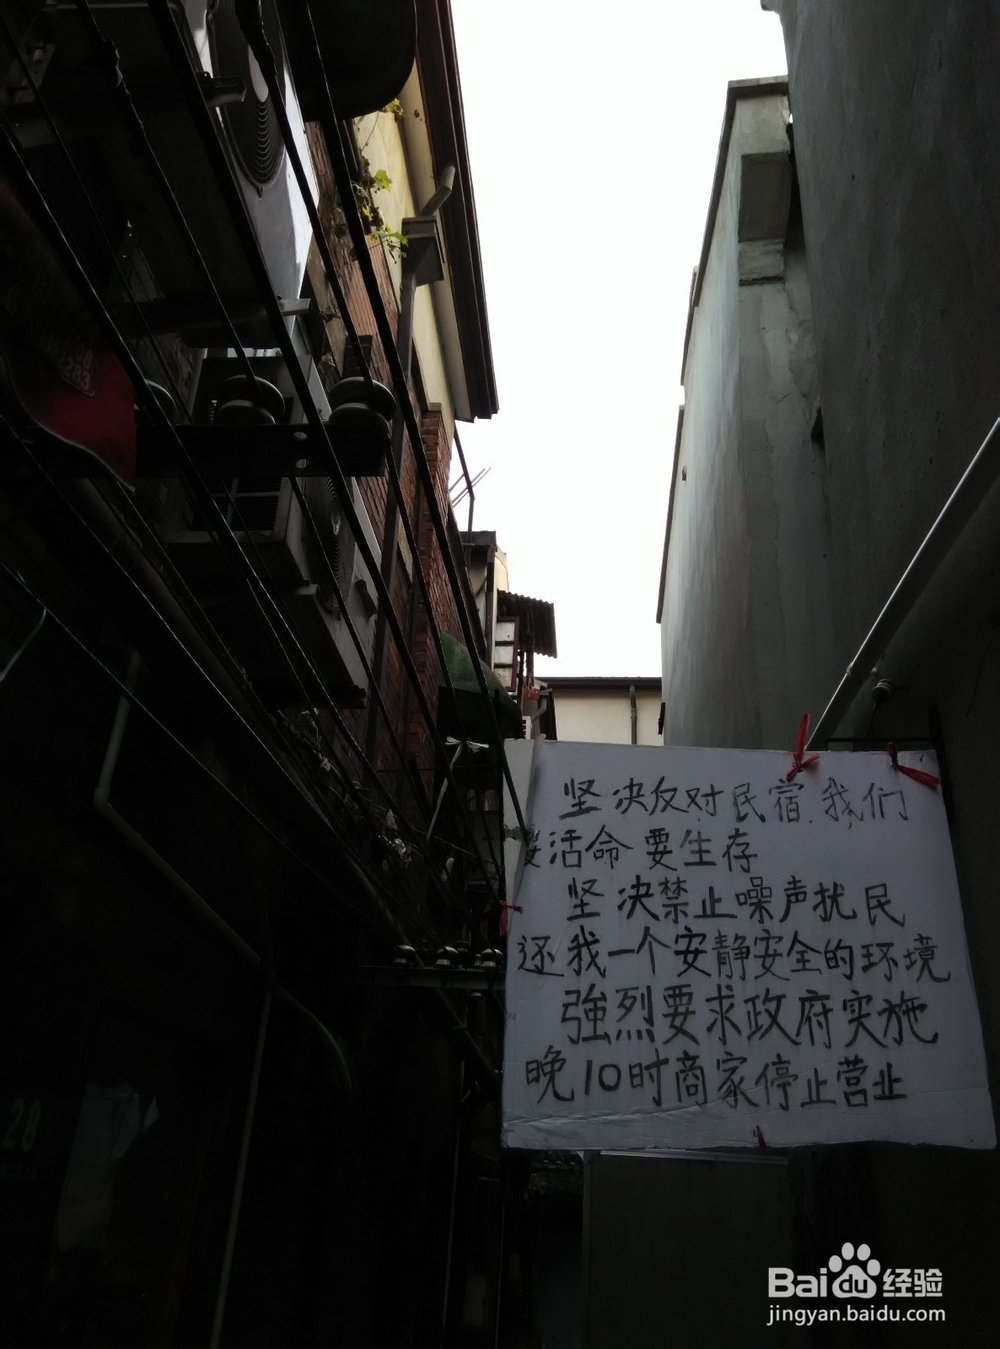 坚决反对民宿 我们
要活命 要生存
坚决禁止噪声扰民
还我一个安静安全的环境
強烈要求政府实施
晚10时商家停止营业
28
Baidu经验
jingyan.baidu.com